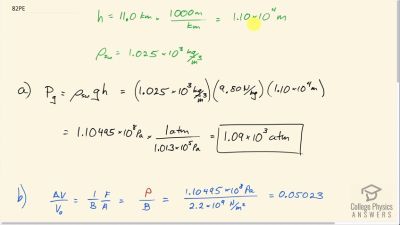 82PE
h = 11.0 km × 1000m/km = 1.10×10⁴ m
ρsw = 1.025×10³ kg/m³
a) Pg = ρsw g h = (1.025×10³ kg/m³)(9.80 N/kg)(1.10×10⁴ m)
= 1.10495×10⁸ Pa × 1 atm/1.013×10⁵ Pa = 1.09×10³ atm
b) ΔV/V₀ = 1/B F/A = P/B = 1.10495×10⁸ Pa/2.2×10⁹ N/m² = 0.05023
College Physics
ANSWERS